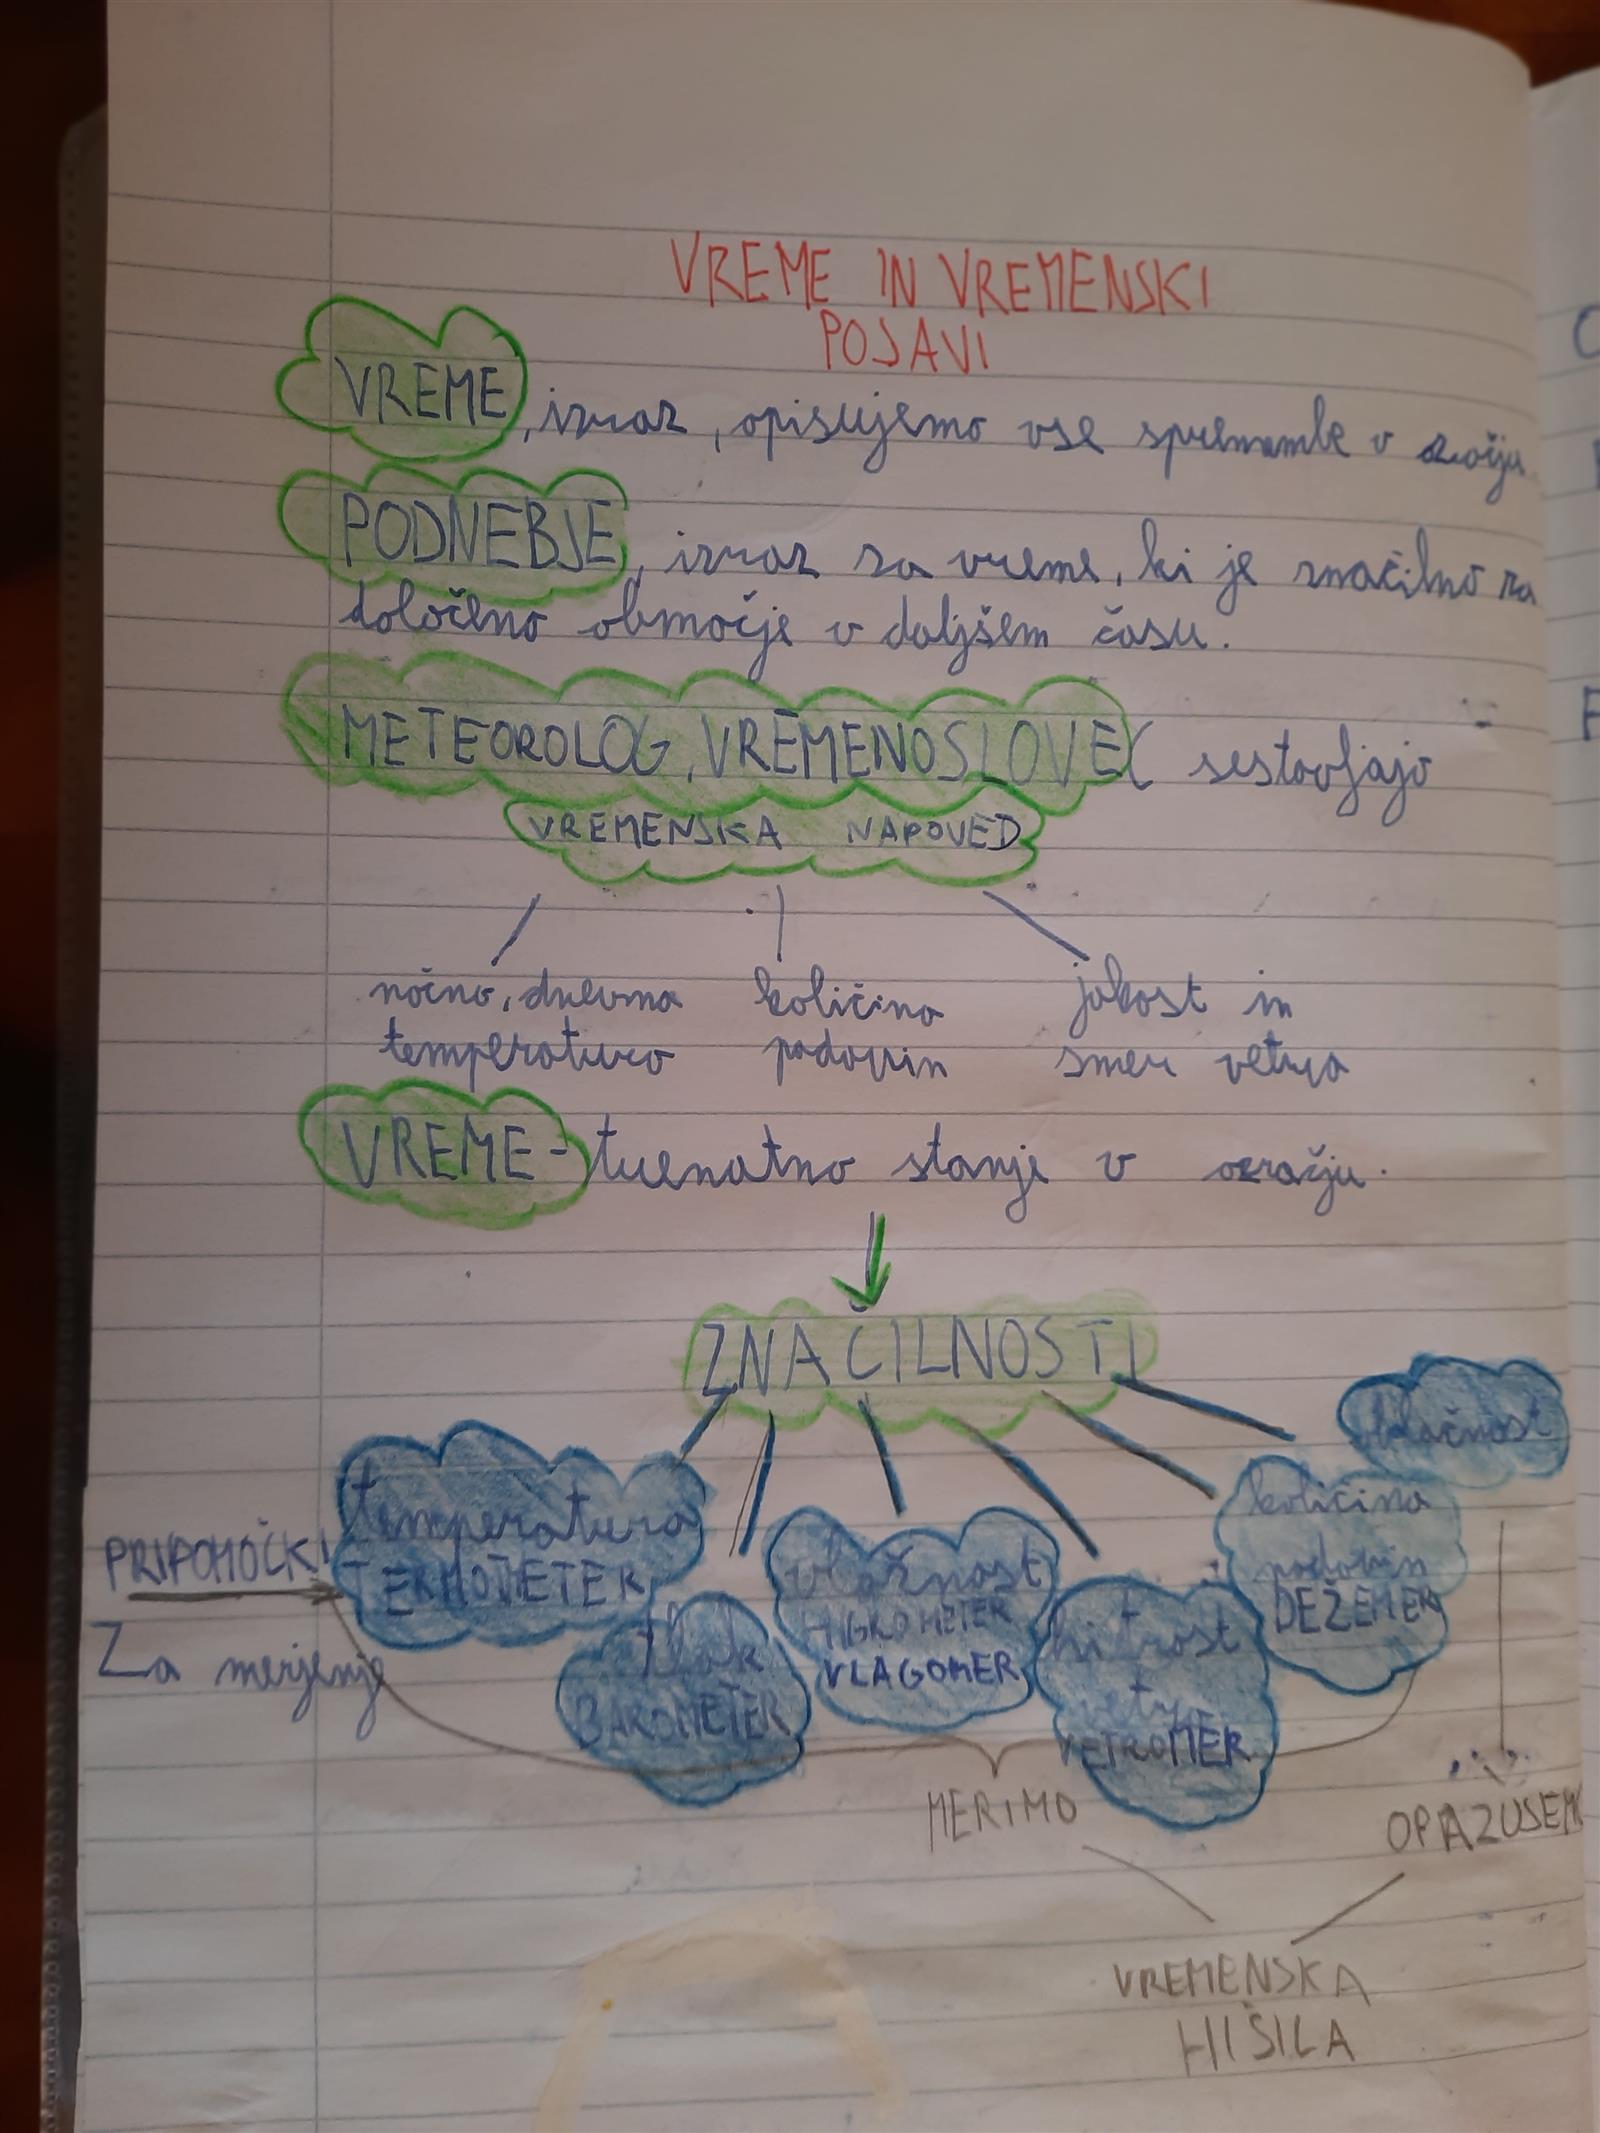 VREME IN VREMENSKI
POJAVI
VREME, izraz, opisujemo vse spremembe v ozračju.
PODNEBJE, izraz za vreme, ki je značilno za
določeno območje v daljšem času.
METEOROLOG, VREMENOSLOVEC sestavljajo
VREMENSKA NAPOVED
nočno, dnevna količina jakost in
temperaturo padavin smer vetra
VREME - trenutno stanje v ozračju.
ZNAČILNOSTI
oblačnost
temperatura
TERMOMETER
količina
padavin
DEŽEMER
PRIPOMOČKI
Za merjenje
vlažnost
HIGROMETER
VLAGOMER
tlak
BAROMETER
hitrost
vetra
VETROMER
MERIMO
OPAZUJEMO
VREMENSKA
HIŠICA